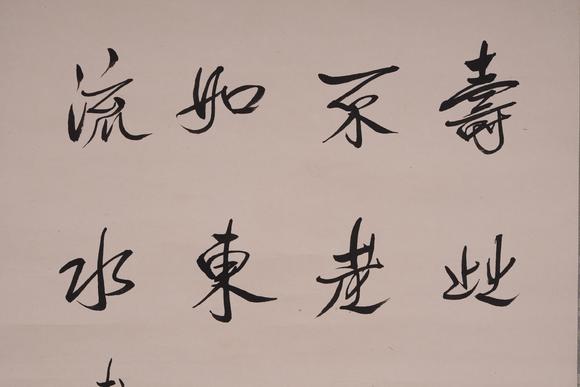 壽比
不老
如東
流水